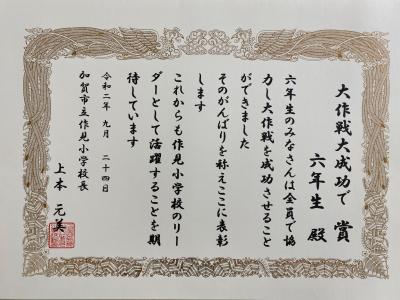 大作戦大成功で賞
六年生 殿
六年生のみなさんは全員で協
力し大作戦を成功させること
ができました
そのがんばりを称えここに表彰
します
これからも作見小学校のリー
ダーとして活躍することを期
待しています
令和二年 九月 二十四日
加賀市立作見小学校長
上本 元美